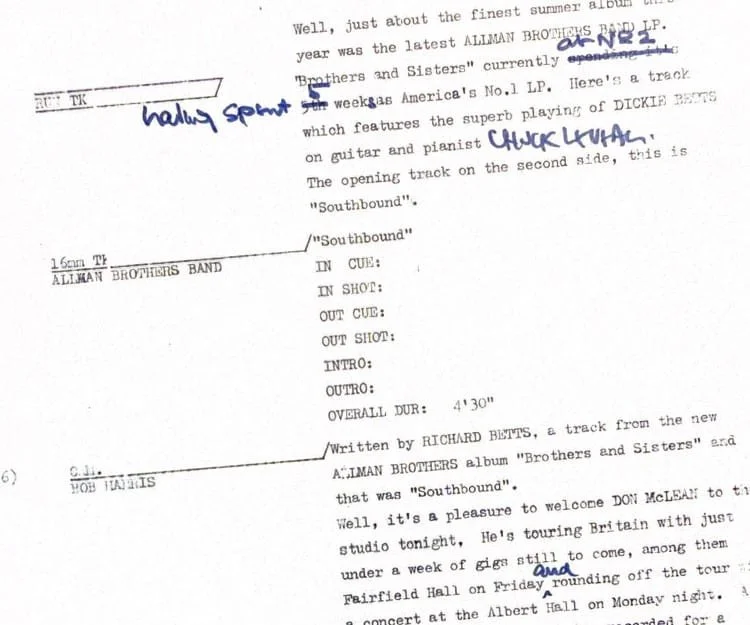 Well, just about the finest summer album this
year was the latest ALLMAN BROTHERS BAND LP.
at NR 2
"Brothers and Sisters" currently spending its
RUN TK
having spent 5 5th weeks as America's No.1 LP. Here's a track
which features the superb playing of DICKIE BETTS
on guitar and pianist CHUCK
The opening track on the second side, this is
"Southbound".
/"Southbound"
16mm TK
ALLMAN BROTHERS BAND
IN CUE:
IN SHOT:
OUT CUE:
OUT SHOT:
INTRO:
OUTRO:
OVERALL DUR: 4'30"
/Written by RICHARD BETTS, a track from the new
6)
BOB HARRIS
ALLMAN BROTHERS album "Brothers and Sisters" and
that was "Southbound".
Well, it's a pleasure to welcome DON McLEAN to th
studio tonight. He's touring Britain with just
under a week of gigs still to come, among them
Fairfield Hall on Friday and rounding off the tour
a concert at the Albert Hall on Monday night. A
recorded for a